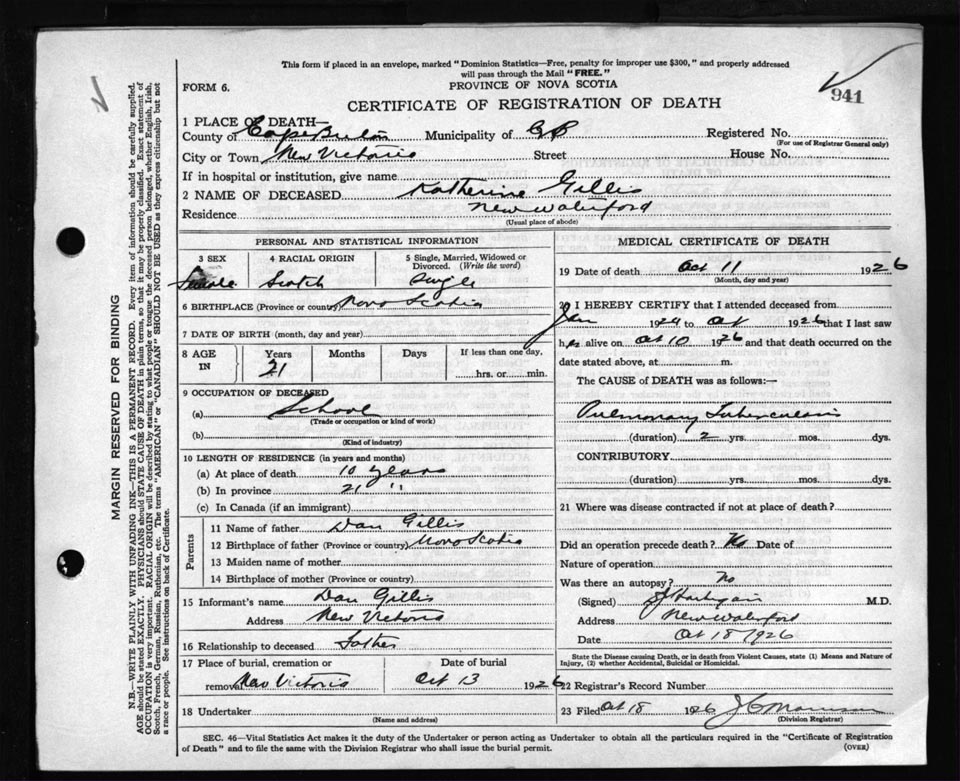 This form if placed in an envelope, marked "Dominion Statistics—Free, penalty for improper use $300," and properly addressed
will pass through the Mail "FREE."
FORM 6.
PROVINCE OF NOVA SCOTIA
941
CERTIFICATE OF REGISTRATION OF DEATH
1 PLACE OF DEATH—
County of Cape Breton Municipality of C B Registered No.
(For use of Registrar General only)
City or Town New Victoria Street House No.
If in hospital or institution, give name
2 NAME OF DECEASED Katherine Gillis
Residence New Waterford
(Usual place of abode)
PERSONAL AND STATISTICAL INFORMATION
3 SEX 4 RACIAL ORIGIN 5 Single, Married, Widowed or
Divorced. (Write the word)
Female Scotch Single
6 BIRTHPLACE (Province or country) Nova Scotia
7 DATE OF BIRTH (month, day and year)
8 AGE IN Years Months Days If less than one day,
21 hrs. or min.
9 OCCUPATION OF DECEASED
(a) School
(Trade or occupation or kind of work)
(b)
(Kind of industry)
10 LENGTH OF RESIDENCE (in years and months)
(a) At place of death 10 years
(b) In province 21 "
(c) In Canada (if an immigrant)
Parents
11 Name of father Dan Gillis
12 Birthplace of father (Province or country) Nova Scotia
13 Maiden name of mother
14 Birthplace of mother (Province or country)
15 Informant's name Dan Gillis
Address New Victoria
16 Relationship to deceased Father
17 Place of burial, cremation or Date of burial
removal New Victoria Oct 13 1926
18 Undertaker
(Name and address)
MEDICAL CERTIFICATE OF DEATH
19 Date of death Oct 11 1926
(Month, day and year)
20 I HEREBY CERTIFY that I attended deceased from
Jan 1924 to Oct 1926 that I last saw
her alive on Oct 10 1926 and that death occurred on the
date stated above, at m.
The CAUSE of DEATH was as follows:—
Pulmonary Tuberculosis
(duration) 2 yrs. mos. dys.
CONTRIBUTORY
(duration) yrs. mos. dys.
21 Where was disease contracted if not at place of death?
Did an operation precede death? No Date of
Nature of operation
Was there an autopsy? No
(Signed) M.D.
Address New Waterford
Date Oct 18 1926
State the Disease causing Death, or in death from Violent Causes, state (1) Means and Nature of
Injury, (2) whether Accidental, Suicidal or Homicidal.
22 Registrar's Record Number
23 Filed Oct 18 1926 J C Morrison
(Division Registrar)
SEC. 46—Vital Statistics Act makes it the duty of the Undertaker or person acting as Undertaker to obtain all the particulars required in the "Certificate of Registration
of Death" and to file the same with the Division Registrar who shall issue the burial permit.
(OVER)
MARGIN RESERVED FOR BINDING
N.B.—WRITE PLAINLY WITH UNFADING INK—THIS IS A PERMANENT RECORD. Every item of information should be carefully supplied.
AGE should be stated EXACTLY. PHYSICIANS should STATE CAUSE OF DEATH in plain terms, so that it may be properly classified. Exact statement of
OCCUPATION is very important. RACIAL ORIGIN will be described by stating to what people or tongue the deceased person belonged, whether English, Irish,
Scotch, French, German, Russian, Ruthenian, etc. The terms "AMERICAN" or "CANADIAN" SHOULD NOT BE USED as they express citizenship but not
a race or people. See instructions on back of Certificate.